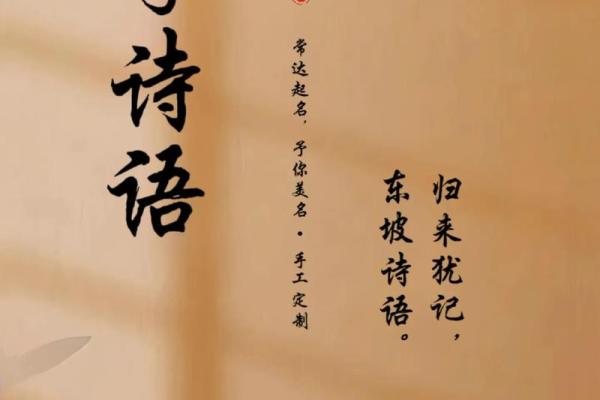 归来犹记，
东坡诗语。
常达起名，予你美名·手工定制
诗语